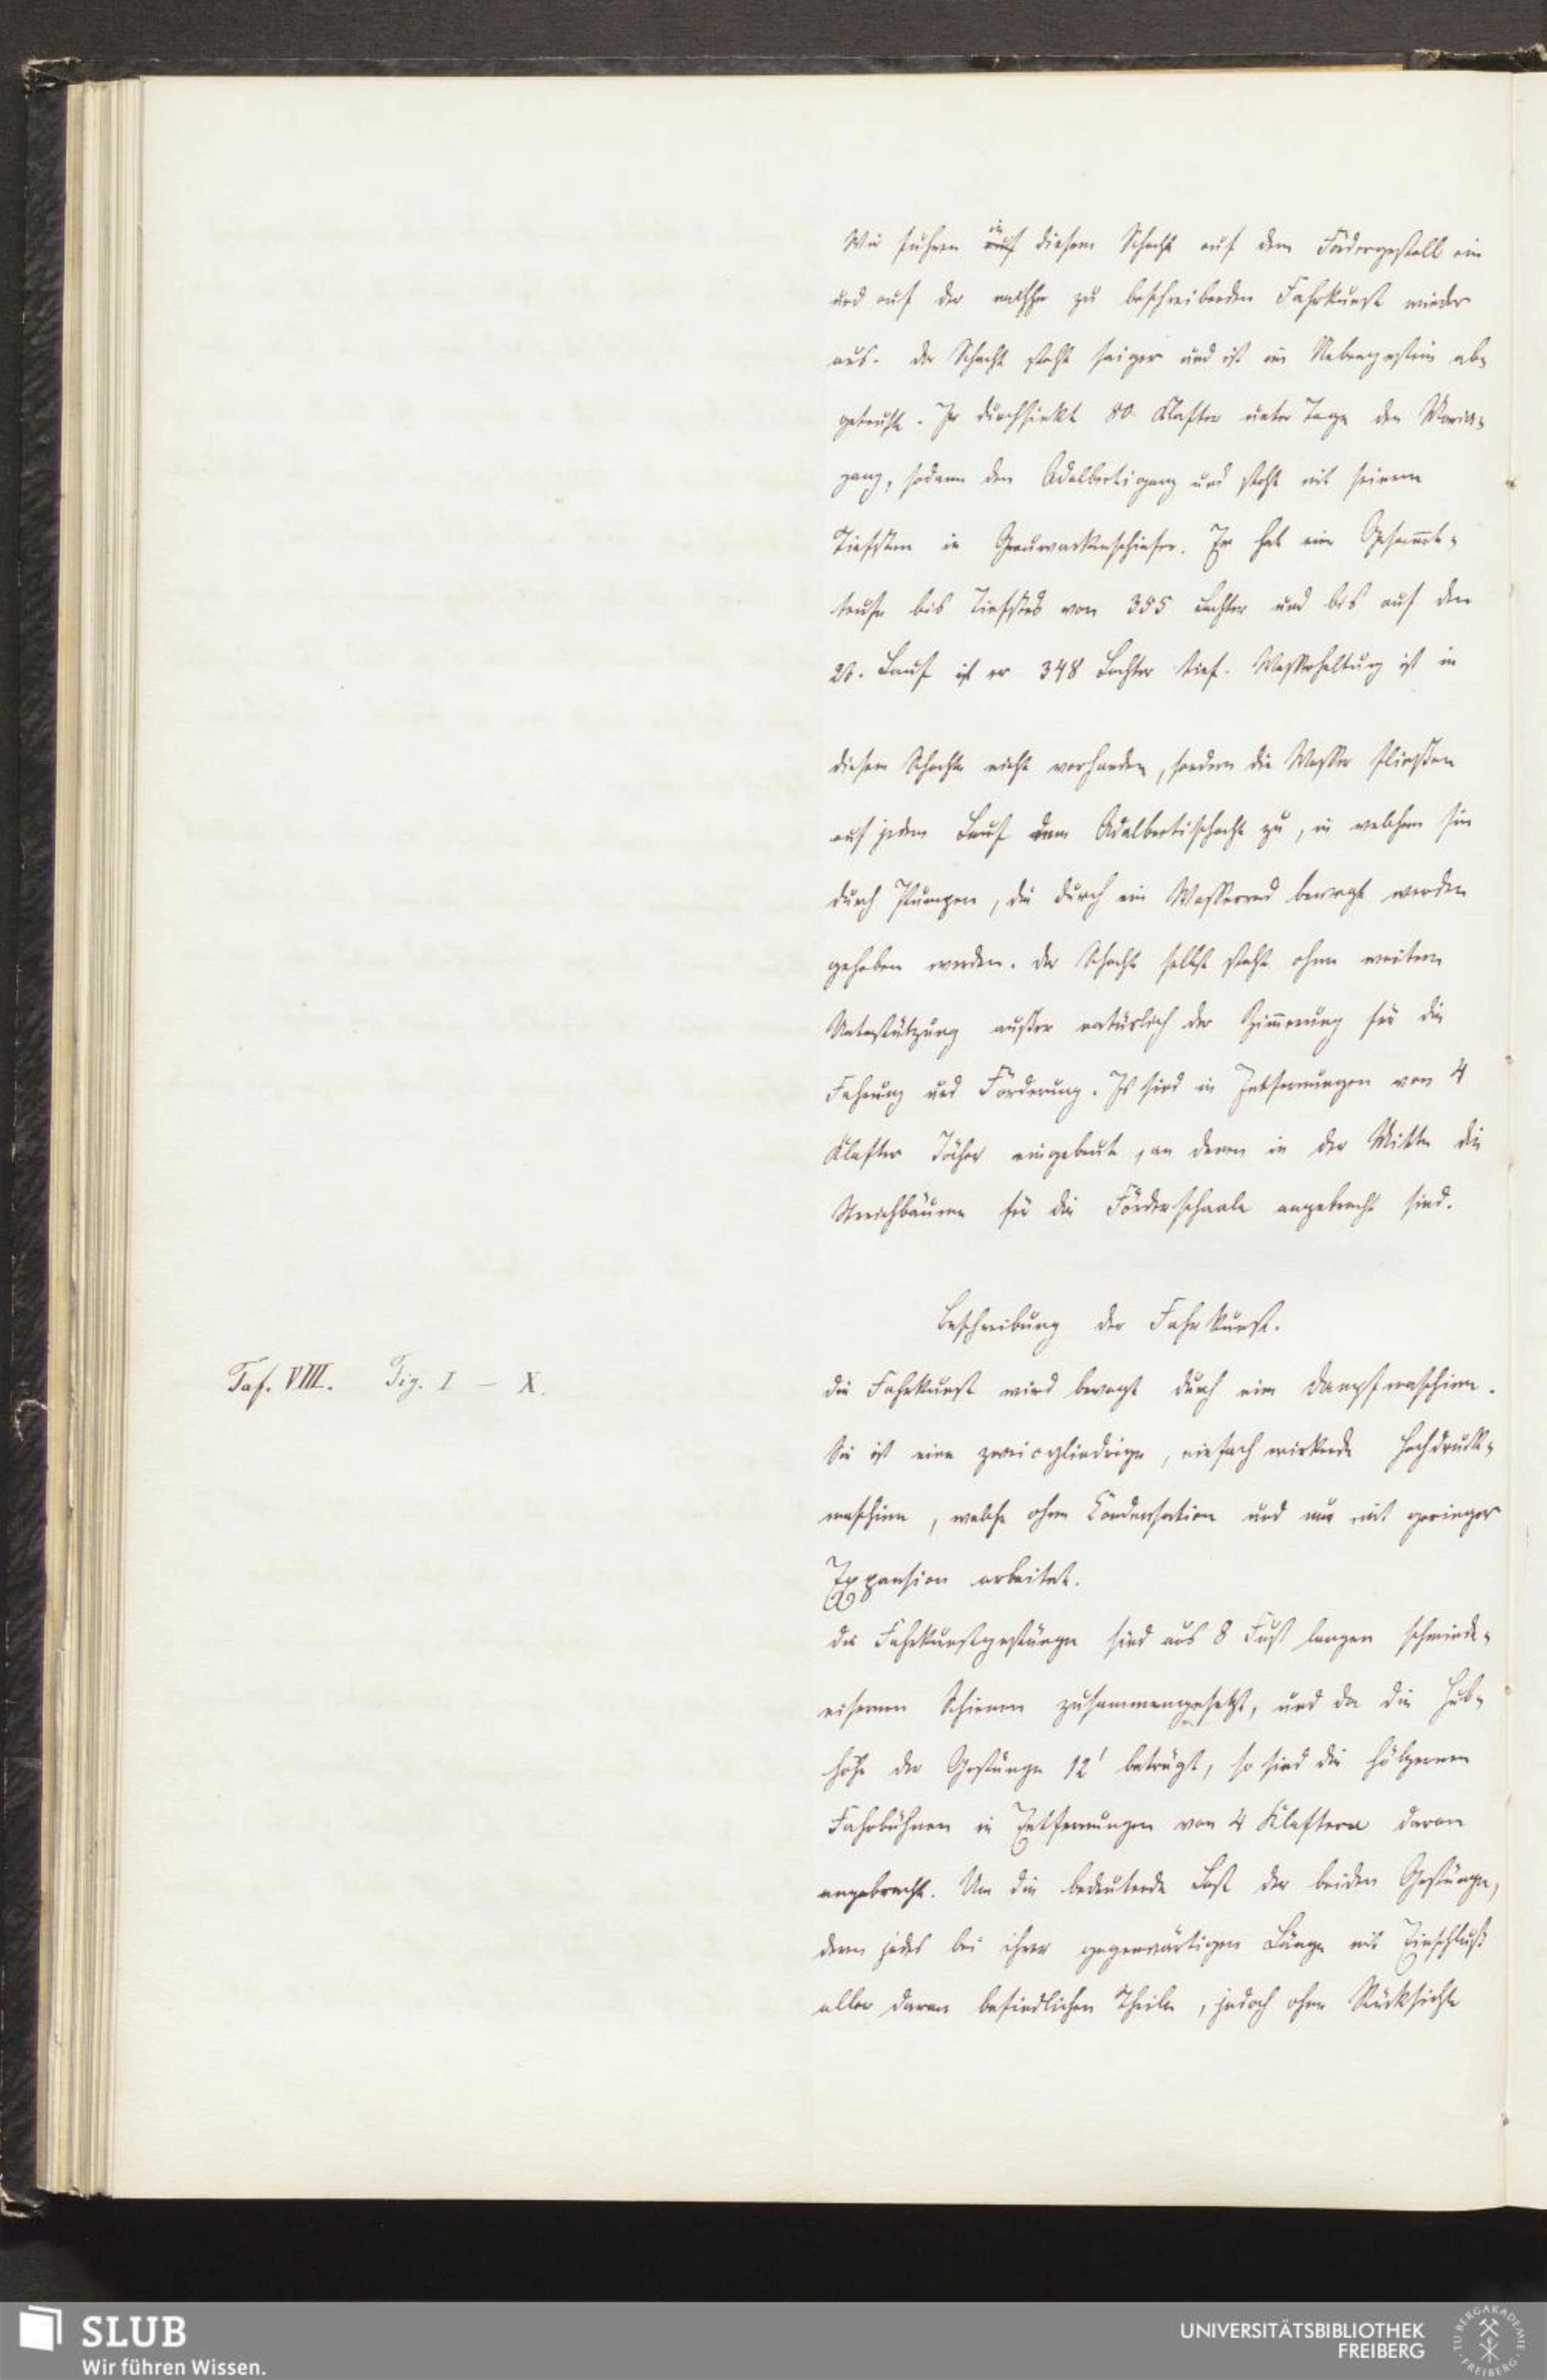 Wir fuhren in auf diesem Schacht auf dem Fördergestell ein
und auf der nachher zu beschreibenden Fahrkunst wieder
aus. Der Schacht steht saiger und ist im Nebengestein ab-
geteuft. Er durchsinkt 80. Klafter unter Tage den Maria-
gang, sodann den Adalbertigang und steht mit seinem
Tiefsten in Grauwackenschiefer. Er hat eine Gesammt-
teufe bis Tiefstes von 355 Lachter und bis auf den
20. Lauf ist er 348 Lachter tief. Wasserhaltung ist in
diesem Schachte nicht vorhanden, sondern die Wasser fließen
auf jedem Lauf dem Adalbertischacht zu, in welchem sie
durch Pumpen, die durch ein Wasserrad bewegt werden
gehoben werden. Der Schacht selbst steht ohne weitere
Unterstützung außer natürlich der Zimmerung für die
Fahrung und Förderung. Es sind in Entfernungen von 4
Klafter Jöcher eingebaut, an denen in der Mitte die
Streichbäume für die Förderschaale angebracht sind.
Beschreibung der Fahrkunst.
Taf. VIII. Fig. I – X.
Die Fahrkunst wird bewegt durch eine Dampfmaschine.
Sie ist eine zweicylindrige, einfach wirkende Hochdruck-
maschine, welche ohne Condensation und nur mit geringer
Expansion arbeitet.
Die Fahrkunstgestänge sind aus 8 Fuß langen schmiede-
eisernen Schienen zusammengesetzt, und da die Hub-
höhe der Gestänge 12' beträgt, so sind die hölzernen
Fahrbühnen in Entfernungen von 4 Klaftern daran
angebracht. Um die bedeutende Last der beiden Gestänge,
deren jedes bei ihrer gegenwärtigen Länge mit Einschluß
aller daran befindlichen Theile, jedoch ohne Rücksicht
SLUB
Wir führen Wissen.
UNIVERSITÄTSBIBLIOTHEK
FREIBERG
TU BERGAKADEMIE
FREIBERG